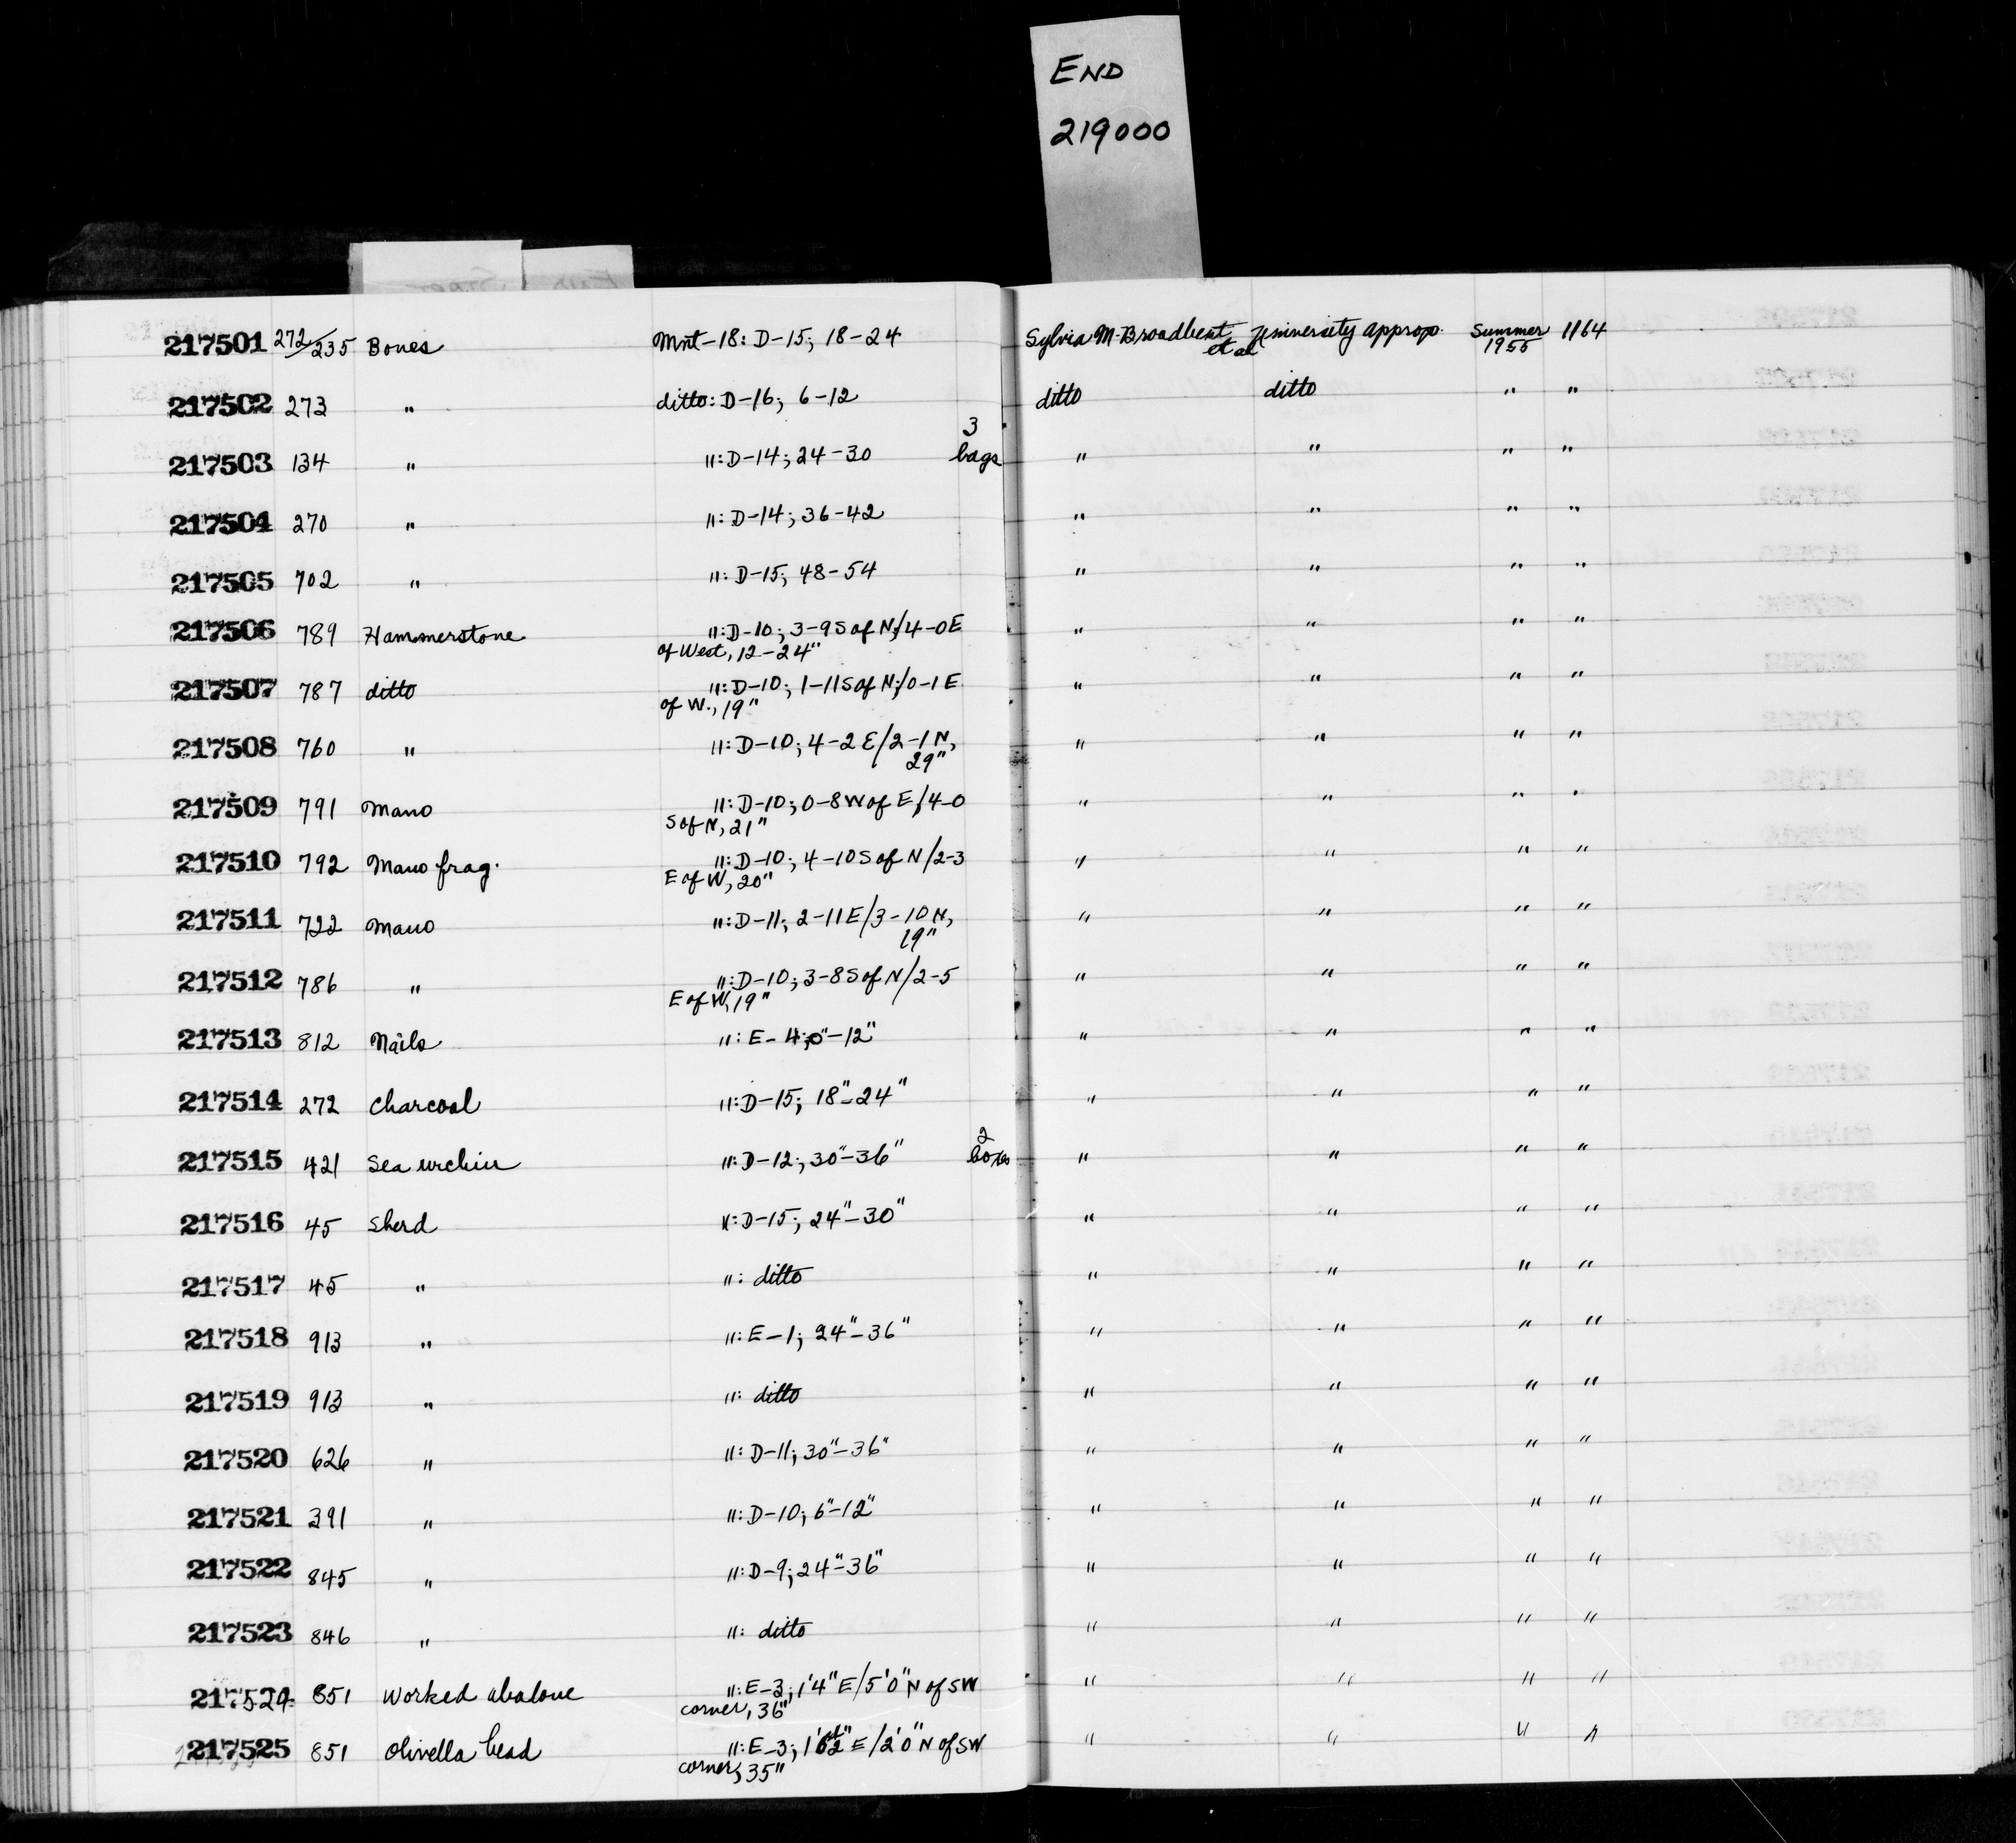 END
219000
217501 272/235 Bones Mnt-18: D-15; 18-24 Sylvia M. Broadbent et al University approp. Summer 1955 1164
217502 273 " ditto: D-16; 6-12 ditto ditto " "
217503 134 " ": D-14; 24-30 3 bags " " " "
217504 270 " ": D-14; 36-42 " " " "
217505 702 " ": D-15; 48-54 " " " "
217506 789 Hammerstone ": D-10; 3-9 S of N/4-0 E " " " "
of West, 12-24"
217507 787 ditto ": D-10; 1-11 S of N/0-1 E " " " "
of W., 19"
217508 760 " ": D-10; 4-2 E/2-1 N, " " " "
29"
217509 791 Mano ": D-10; 0-8 W of E/4-0 " " " "
S of N, 21"
217510 792 Mano frag. ": D-10; 4-10 S of N/2-3 " " " "
E of W, 20"
217511 722 Mano ": D-11; 2-11 E/3-10 N, " " " "
19"
217512 786 " ": D-10; 3-8 S of N/2-5 " " " "
E of W, 19"
217513 812 Nails ": E-4; 0"-12" " " " "
217514 272 Charcoal ": D-15; 18"-24" " " " "
217515 421 Sea urchin ": D-12; 30"-36" 2 boxes " " " "
217516 45 Sherd ": D-15; 24"-30" " " " "
217517 45 " ": ditto " " " "
217518 913 " ": E-1; 24"-36" " " " "
217519 913 " ": ditto " " " "
217520 626 " ": D-11; 30"-36" " " " "
217521 391 " ": D-10; 6"-12" " " " "
217522 845 " ": D-9; 24"-36" " " " "
217523 846 " ": ditto " " " "
217524 851 Worked abalone ": E-3; 1'4" E/5'0" N of SW " " " "
corner, 36"
217525 851 Olivella bead ": E-3; E/2'0" N of SW " " " "
corner, 35"